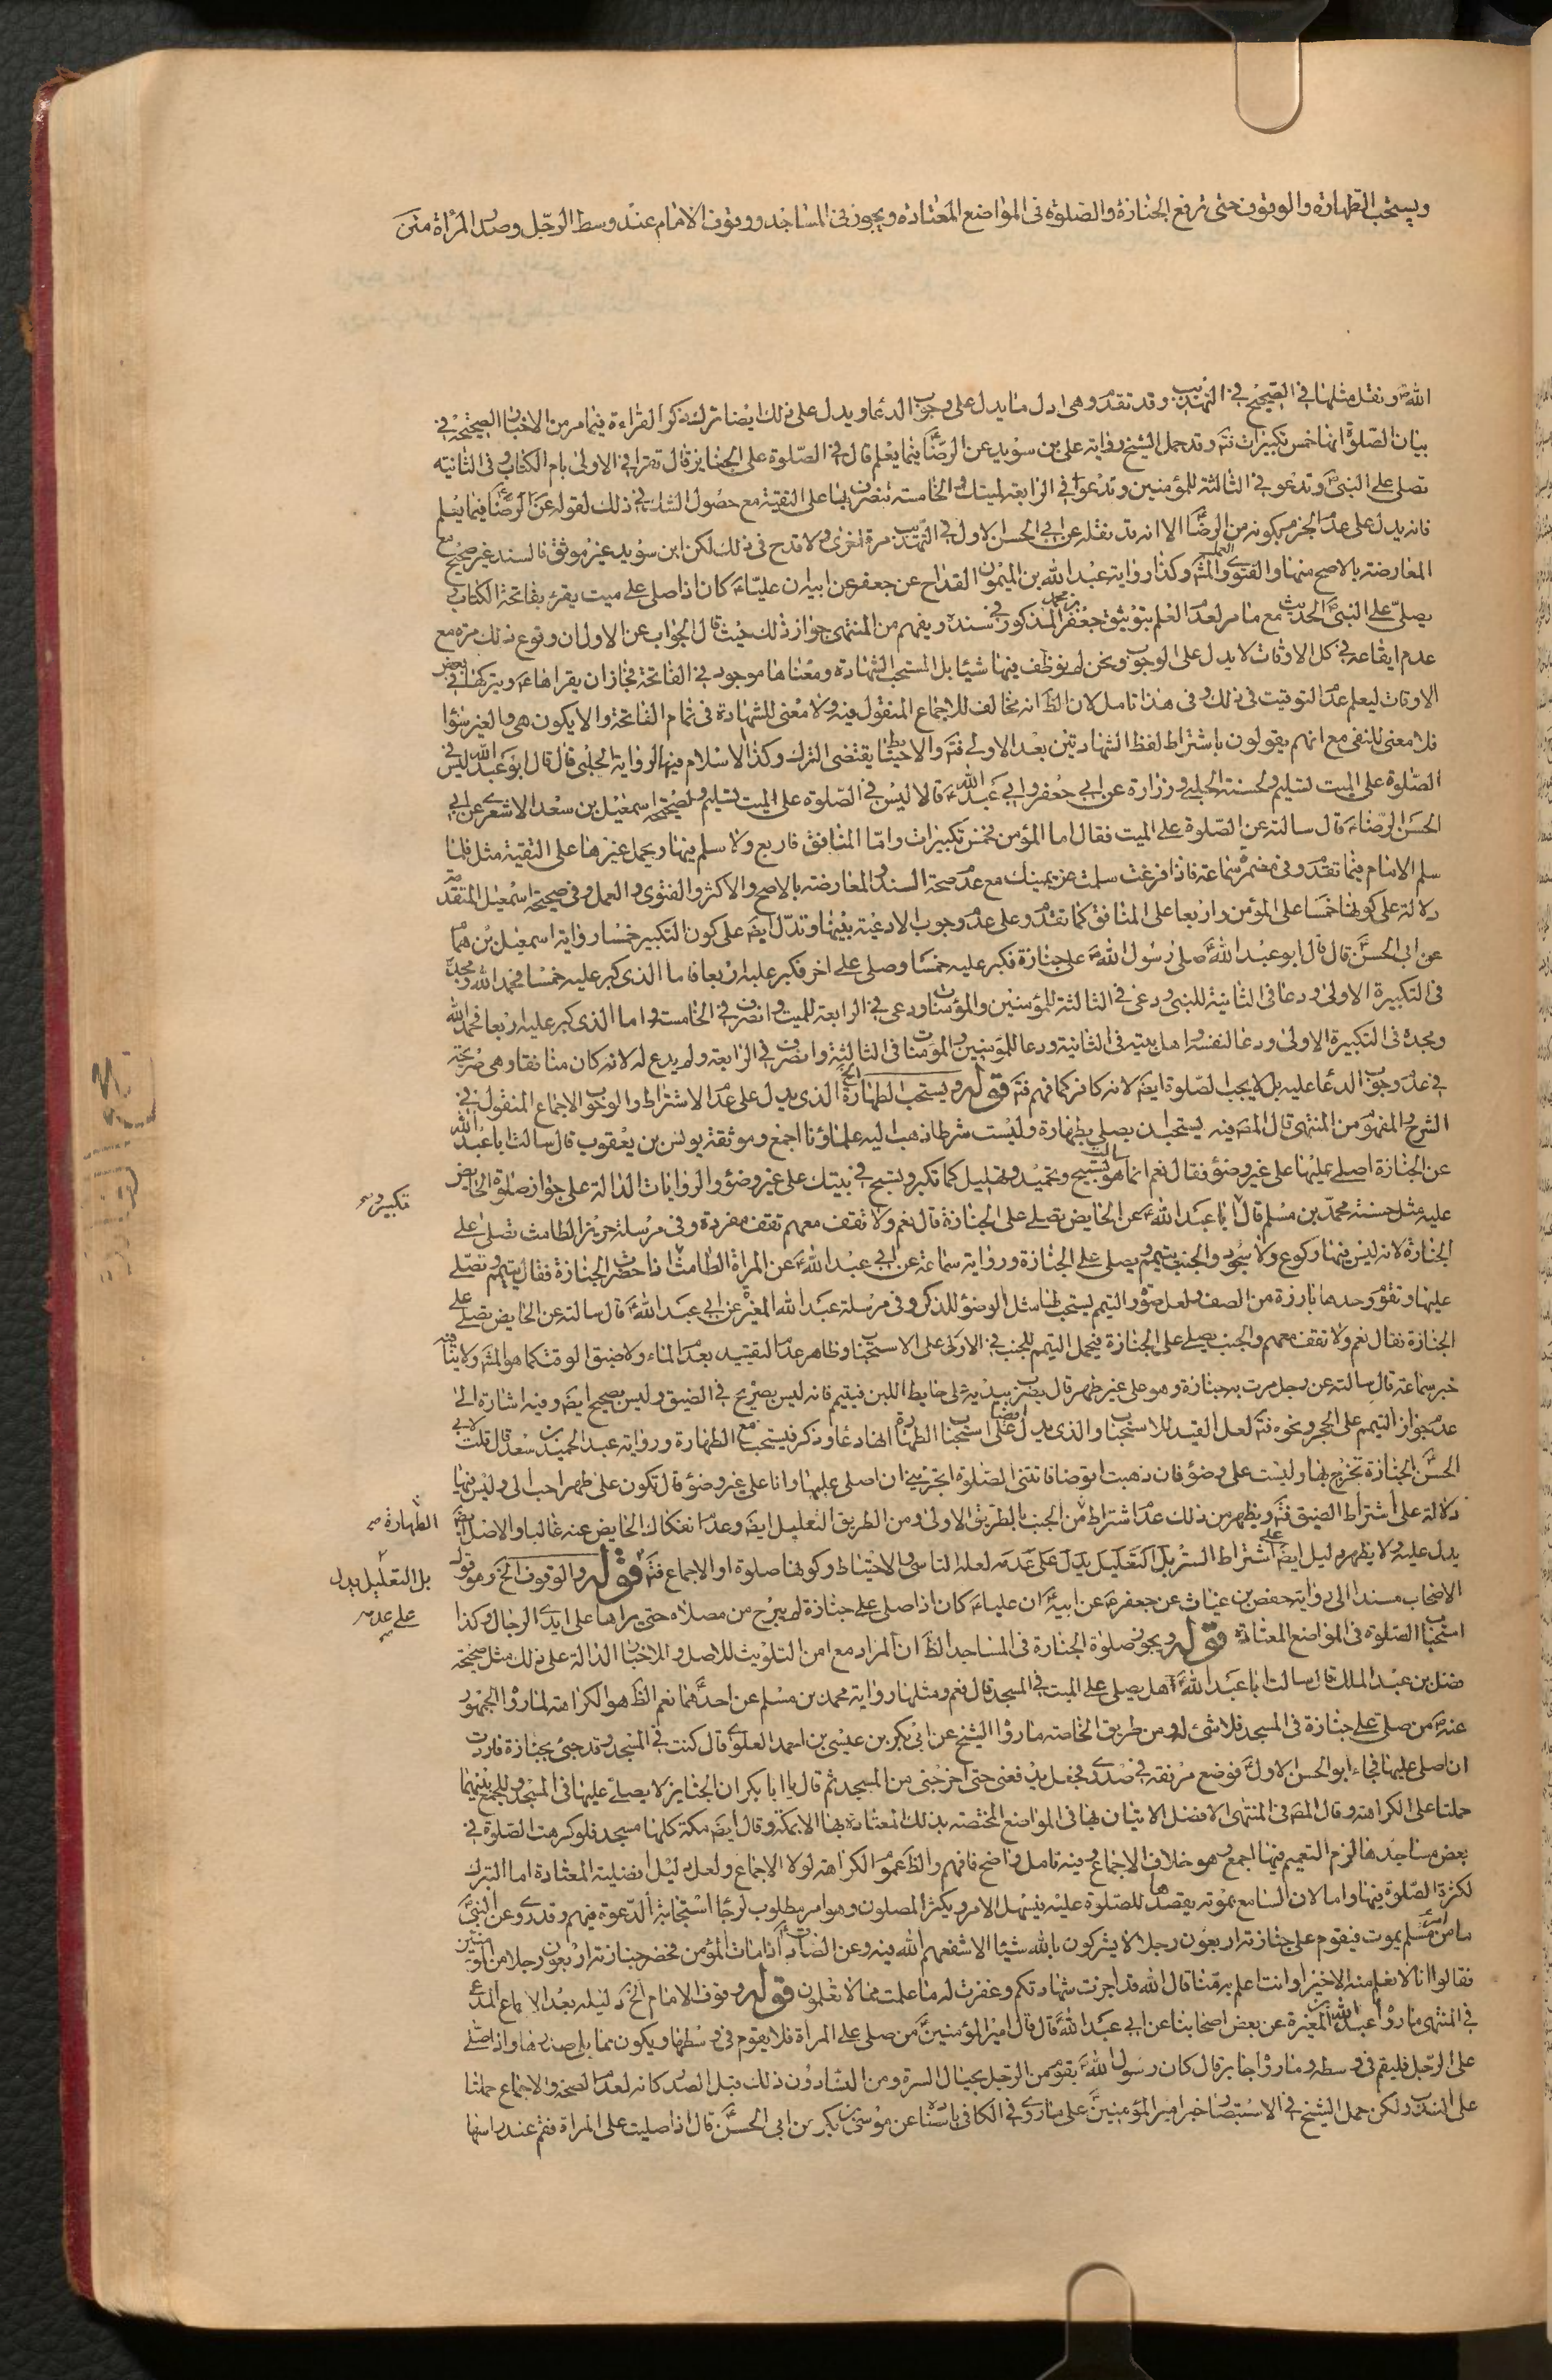 ويستحب الطهارة والوقوف حتى ترفع الجنازة والصلوة فى المواضع المعتادة ويجوز فى المساجد ووقوف الامام عند وسط الرجل وصدر المراة
الله ونقل مثلها فى الصحيح فى التهذيب وقد تقدم وهى ادل ما يدل على وجوب الدعا ويدل على ذلك ايضا ترك ذكر القراءة فيما مر من الاخبار الصحيحة فى
بيان الصلوة انها خمس تكبيرات فت‍ه وقد حمل الشيخ رواية على بن سويد عن الرضا فيما يعلم قال فى الصلوة على الجنايز قال تقرا فى الاولى بام الكتاب وفى الثانية
تصلى على النبى وتدعو فى الثالثة للمؤمنين وتدعو فى الرابعة لميتك والخامسة تنصرف بها على التقية مع حصول الشك فى ذلك لقوله عن الرضا فيما يعلم
فانه يدل على عدم الجزم بكونه من الرضا الا انه قد نقله عن ابى الحسن الاول فى التهذيب مرة اخرى ولا قدح فى ذلك لكن ابن سويد غير موثق فالسند غير صحيح مع
المعارضة بالاصح منها والفتوى والشهرة وكذا رواية عبد الله بن الميمون القداح عن جعفر عن ابيه ان عليا كان اذا صلى على ميت يقرء بفاتحة الكتاب و
يصلى على النبى الحديث مع ما مر لعدم العلم بتوثيق جعفر بن محمد المذكور فى سنده ويفهم من المنتهى جواز ذلك حيث قال الجواب عن الاول ان وقوع ذلك مرة مع
عدم ايقاعه فى كل الاوقات لا يدل على الوجوب ونحن لم نوظف فيها شيئا بل المستحب الشهادة ومعناها موجود فى الفاتحة فجاز ان يقراها ويتركها فى بعض
الاوقات ليعلم عدم التوقيت فى ذلك وفى هذا تامل لان الظ انه مخالف للاجماع المنقول فيه ولا معنى للشهادة فى تمام الفاتحة والا يكون هى والغير سواء
فلا معنى للنفى مع انهم يقولون باشتراط لفظ الشهادتين بعد الاولى فته والاحتياط يقتضى الترك وكذا لا سلام فيها لرواية الحلبى قال قال ابو عبد الله ليس فى
الصلوة على الميت تسليم ولحسنة الحلبى وزرارة عن ابى جعفر وابى عبد الله قالا ليس فى الصلوة على الميت تسليم ولصحيحة اسمعيل بن سعد الاشعرى عن ابى
الحسن الرضا قال سالته عن الصلوة على الميت فقال اما المؤمن فخمس تكبيرات واما المنافق فاربع ولا سلم فيها ويحمل غيرها على التقية مثل فلما
سلم الامام فيما تقدم وفى مضمرة سماعة فاذا فرغت سلمت عن يمينك مع عدم صحة السند والمعارضة بالاصح والاكثر والفتوى والعمل وفى صحيحة اسمعيل المتقدمة
دلالة على كونها خمسا على المؤمن واربعا على المنافق كما تقدم وعلى عدم وجوب الادعية بينها وتدل ايضا على كون التكبير خمسا رواية اسمعيل بن همام
عن ابى الحسن قال قال ابو عبد الله صلى رسول الله على جنازة فكبر عليه خمسا وصلى على اخر فكبر عليه اربعا فاما الذى كبر عليه خمسا فحمد الله ومجده
فى التكبيرة الاولى ودعا فى الثانية للنبى ودعى فى الثالثة للمؤمنين والمؤمنات ودعى فى الرابعة للميت وانصرف فى الخامسة واما الذى كبر عليه اربعا فحمد الله
ومجده فى التكبيرة الاولى ودعا لنفسه واهل بيته فى الثانية ودعا للمؤمنين والمومنات فى الثالثة وانصرف فى الرابعة ولم يدع له لانه كان منافقا وهى صريحة
فى عدم وجوب الدعا عليه بل لا يجب الصلوة ايضا لانه كافر كما فهم فته قوله ويستحب الطهارة الخ الذى يدل على عدم الاشتراط والوجوب الاجماع المنقول فى
الشرح والمفهوم من المنتهى قال المص فيه يستحب ان يصلى بطهارة وليست شرطا ذهب اليه علماؤنا اجمع وموثقة يونس بن يعقوب قال سالت ابا عبد الله
عن الجنازة اصلى عليها على غير وضؤ فقال نعم انما هو تسبيح وتحميد وتهليل كما تكبر وتسبح فى بيتك على غير وضؤ والروايات الدالة على جواز صلوة الحايض
تكبير و
عليه مثل حسنة محمد بن مسلم قال ابا عبد الله عن الحايض تصلى على الجنازة قال نعم ولا تقف معهم تقف مفردة وفى مرسلة حريز الطامث تصلى على
الجنازة لانه ليس فيها ركوع ولا سجود والجنب يتيمم ويصلى على الجنازة ورواية سماعة عن ابى عبد الله عن المراة الطامث اذا حضرت الجنازة فقال يتيمم وتصلى
عليها وتقوم وحدها بارزة من الصف ولعل صورة التيمم يستحب لها مثل الوضؤ للذكر وفى مرسلة عبد الله المغيرة عن ابى عبد الله قال سالته عن الحايض تصلى على
الجنازة فقال نعم ولا تقف معهم والجنب يصلى على الجنازة فيحمل التيمم للجنب فى الاولى على الاستحباب وظاهر عدم التقييد بعدم الماء ولا ضيق الوقت كما هو المشهور ولا ينافيه
خبر سماعة قال سالته عن رجل مرت به جنازة وهو على غير طهر قال يضرب بيديه على حايط اللبن فيتيمم فانه ليس بصريح فى الضيق وليس بصحيح ايضا وفيه اشارة الى
عدم جواز التيمم على الحجر ونحوه فته لعل القيد للاستحباب والذى يدل على استحباب الطهارة ايضا انها دعا وذكر فيستحب مع الطهارة ورواية عبد الحميد بن سعد قال قلت لابى
الحسن الجنازة تخرج بها وليست على وضؤ فان ذهبت اتوضا فاتتنى الصلوة ايجزينى ان اصلى عليها وانا على غير وضؤ قال تكون على طهر احب الى وليس فيها
دلالة على اشتراط الضيق فته ويظهر من ذلك عدم اشتراط من الجنب بالطريق الاولى ومن الطريق التعليل ايضا وعدم انفكاك الحايض عنه غالبا والاصل ايضا
الطهارة
يدل عليه ولا يظهر دليل ايضا على اشتراط الستر بل التعليل يدل على عدمه لعله التاسى والاحتياط وكونها صلوة او الاجماع فته قوله والوقوف الخ وهو قول
بل التعليل يدل
على عدمه
الاصحاب مستندا الى رواية حفص بن غياث عن جعفر عن ابيه ان عليا كان اذا صلى على جنازة لم يبرح من مصلاه حتى يراها على ايدى الرجال وكذا
استحباب الصلوة فى المواضع المعتادة قوله ويجوز صلوة الجنازة فى المساجد الظ ان المراد مع امن التلويث للاصل والاخبار الدالة على ذلك مثل صحيحة
فضل بن عبد الملك قال سالت ابا عبد الله هل يصلى على الميت فى المسجد قال نعم ومثلها رواية محمد بن مسلم عن احدهما نعم الظ هو الكراهة لما رواه الجمهور
عنه من صلى على جنازة فى المسجد فلا شئ له ومن طريق الخاصة ما رواه الشيخ عن ابى بكر بن عيسى بن احمد العلوى قال كنت فى المسجد وقد جئ بجنازة فاردت
ان اصلى عليها فجاء ابو الحسن الاول فوضع مرفقه فى صدرى فجعل يدفعنى حتى اخرجنى من المسجد ثم قال يا ابا بكر ان الجنايز لا يصلى عليها فى المسجد وللجمع بينهما
حملنا على الكراهة وقال المص فى المنتهى الافضل الاتيان بها فى المواضع المختصة بذلك المعتادة بها الا بمكة وقال ايضا مكة كلها مسجد فلو كرهت الصلوة فى
بعض مساجدها لزم التعميم فيها اجمع وهو خلاف الاجماع وفيه تامل واضح فافهم والظ عموم الكراهة لولا الاجماع ولعل دليل افضلية المعتادة اما التبرك
لكثرة الصلوة فيها واما لان السامع بموته يقصدها للصلوة عليه فيسهل الامر ويكثر المصلون وهو امر مطلوب لرجا استجابة الدعوة فيهم وقد روى عن النبى
ما من امرء مسلم يموت فيقوم على جنازته اربعون رجلا لا يشركون بالله شيئا الا شفعهم الله فيه وعن الصادق اذا مات المؤمن فحضر جنازته اربعون رجلا من المؤمنين
فقالوا انا لا نعلم منه الا خيرا وانت اعلم به منا قال الله قد اجزت شهادتكم وغفرت له ما علمت مما لا تعلمون قوله ووقوف الامام الخ دليله بعد الاجماع المدعى
فى المنتهى ما رواه عبد الله بن المغيرة عن بعض اصحابنا عن ابى عبد الله قال قال امير المؤمنين من صلى على المراة فلا يقوم فى وسطها ويكون مما يلى صدرها واذا صلى
على الرجل فليقم فى وسطه وما رواه جابر قال كان رسول الله يقوم من الرجل بحيال السرة ومن النساء دون ذلك قبل الصدر كانه لعدم الصحة والاجماع حملنا
على الندب ولكن حمل الشيخ فى الاستبصار خبر امير المؤمنين على ما روى فى الكافى باسناده عن موسى بن بكر عن ابى الحسن قال اذا صليت على المراة فقم عند راسها